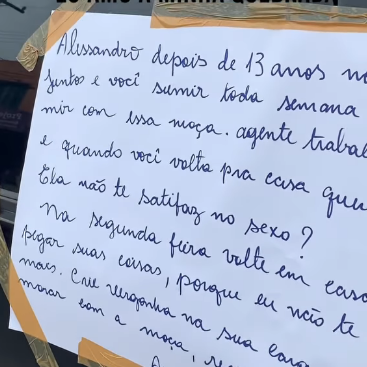 EU AMO A MINHA QUEBRADA
Alissandro depois de 13 anos
juntos e você sumir toda semana
mir com essa moça. agente trabal
e quando você volta pra casa quer
Ela não te satifaz no sexo?
Na segunda feira volte em casa
pegar suas coisas, porque eu não te
mais. Crie vergonha na sua cara
morar com a moça,